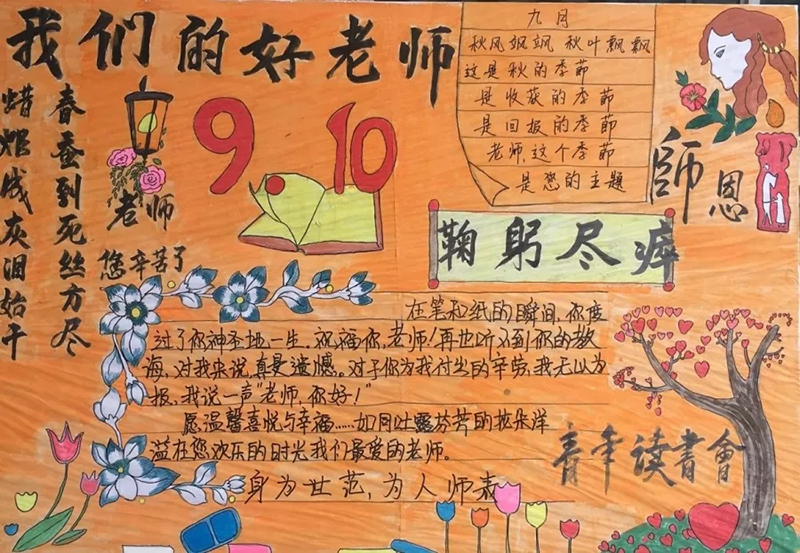 我们的好老师
春蚕到死丝方尽
蜡炬成灰泪始干
9 10
老师
您辛苦了
九月
秋风飒飒 秋叶飘飘
这是秋的季節
是收获的季節
是回报的季節
老师,这个季節
是您的主题
師恩
鞠躬尽瘁
在笔和纸的瞬间,你度
过了你神圣地一生.祝福你,老师!再也听不到你的教
诲,对我来说,真是遗憾。对于你为我付出的辛劳,我无以为
报,我说一声"老师,你好!"
愿温馨喜悦与幸福……如同吐露芬芳的花朵洋
溢在您欢乐的时光我们最爱的老师。
身为世范,为人师表
青年读書會